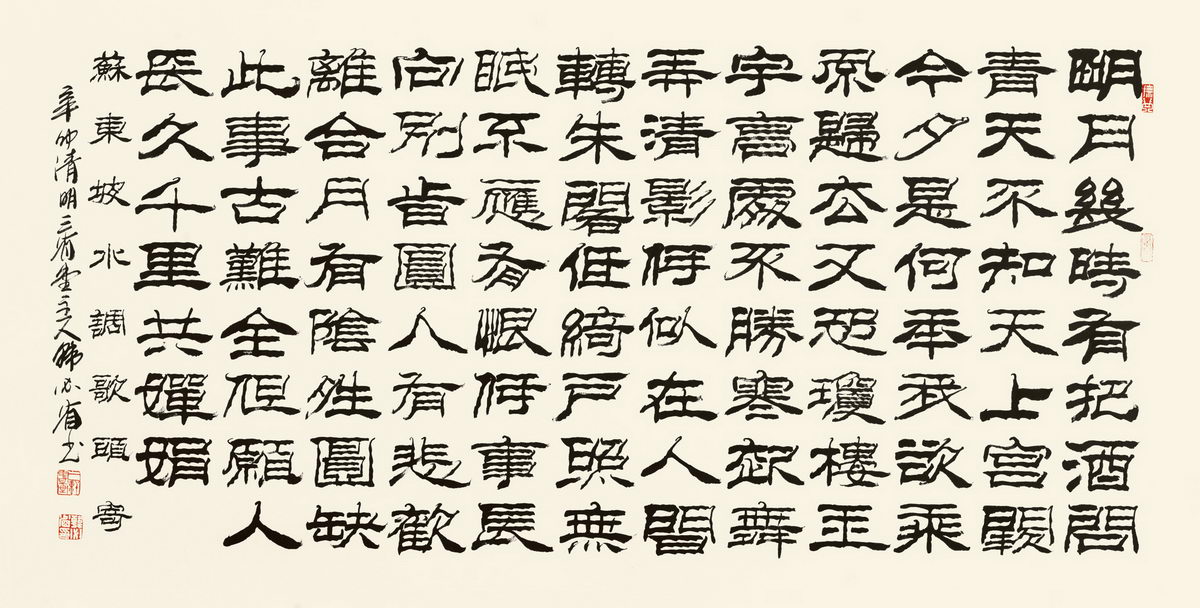 明月幾時有把酒問
青天不知天上宮闕
今夕是何年我欲乘
風歸去又恐瓊樓玉
宇高處不勝寒起舞
弄清影何似在人間
轉朱閣低綺戶照無
眠不應有恨何事長
向別時圓人有悲歡
離合月有陰晴圓缺
此事古難全但願人
長久千里共嬋娟
蘇東坡水調歌頭寄
辛卯清明三省堂主人韓必省书